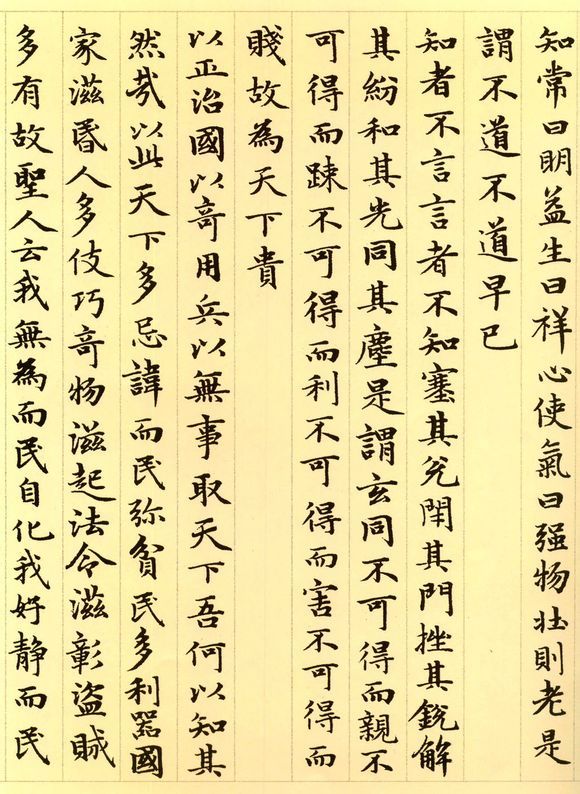 知常曰明益生曰祥心使氣曰强物壯則老是
謂不道不道早已
知者不言言者不知塞其兌閇其門挫其銳解
其紛和其光同其塵是謂玄同不可得而親不
可得而踈不可得而利不可得而害不可得而
賤故為天下貴
以正治國以竒用兵以無事取天下吾何以知其
然哉以此天下多忌諱而民弥貧民多利器國
家滋昬人多伎巧竒物滋起法令滋彰盜賊
多有故聖人云我無為而民自化我好静而民